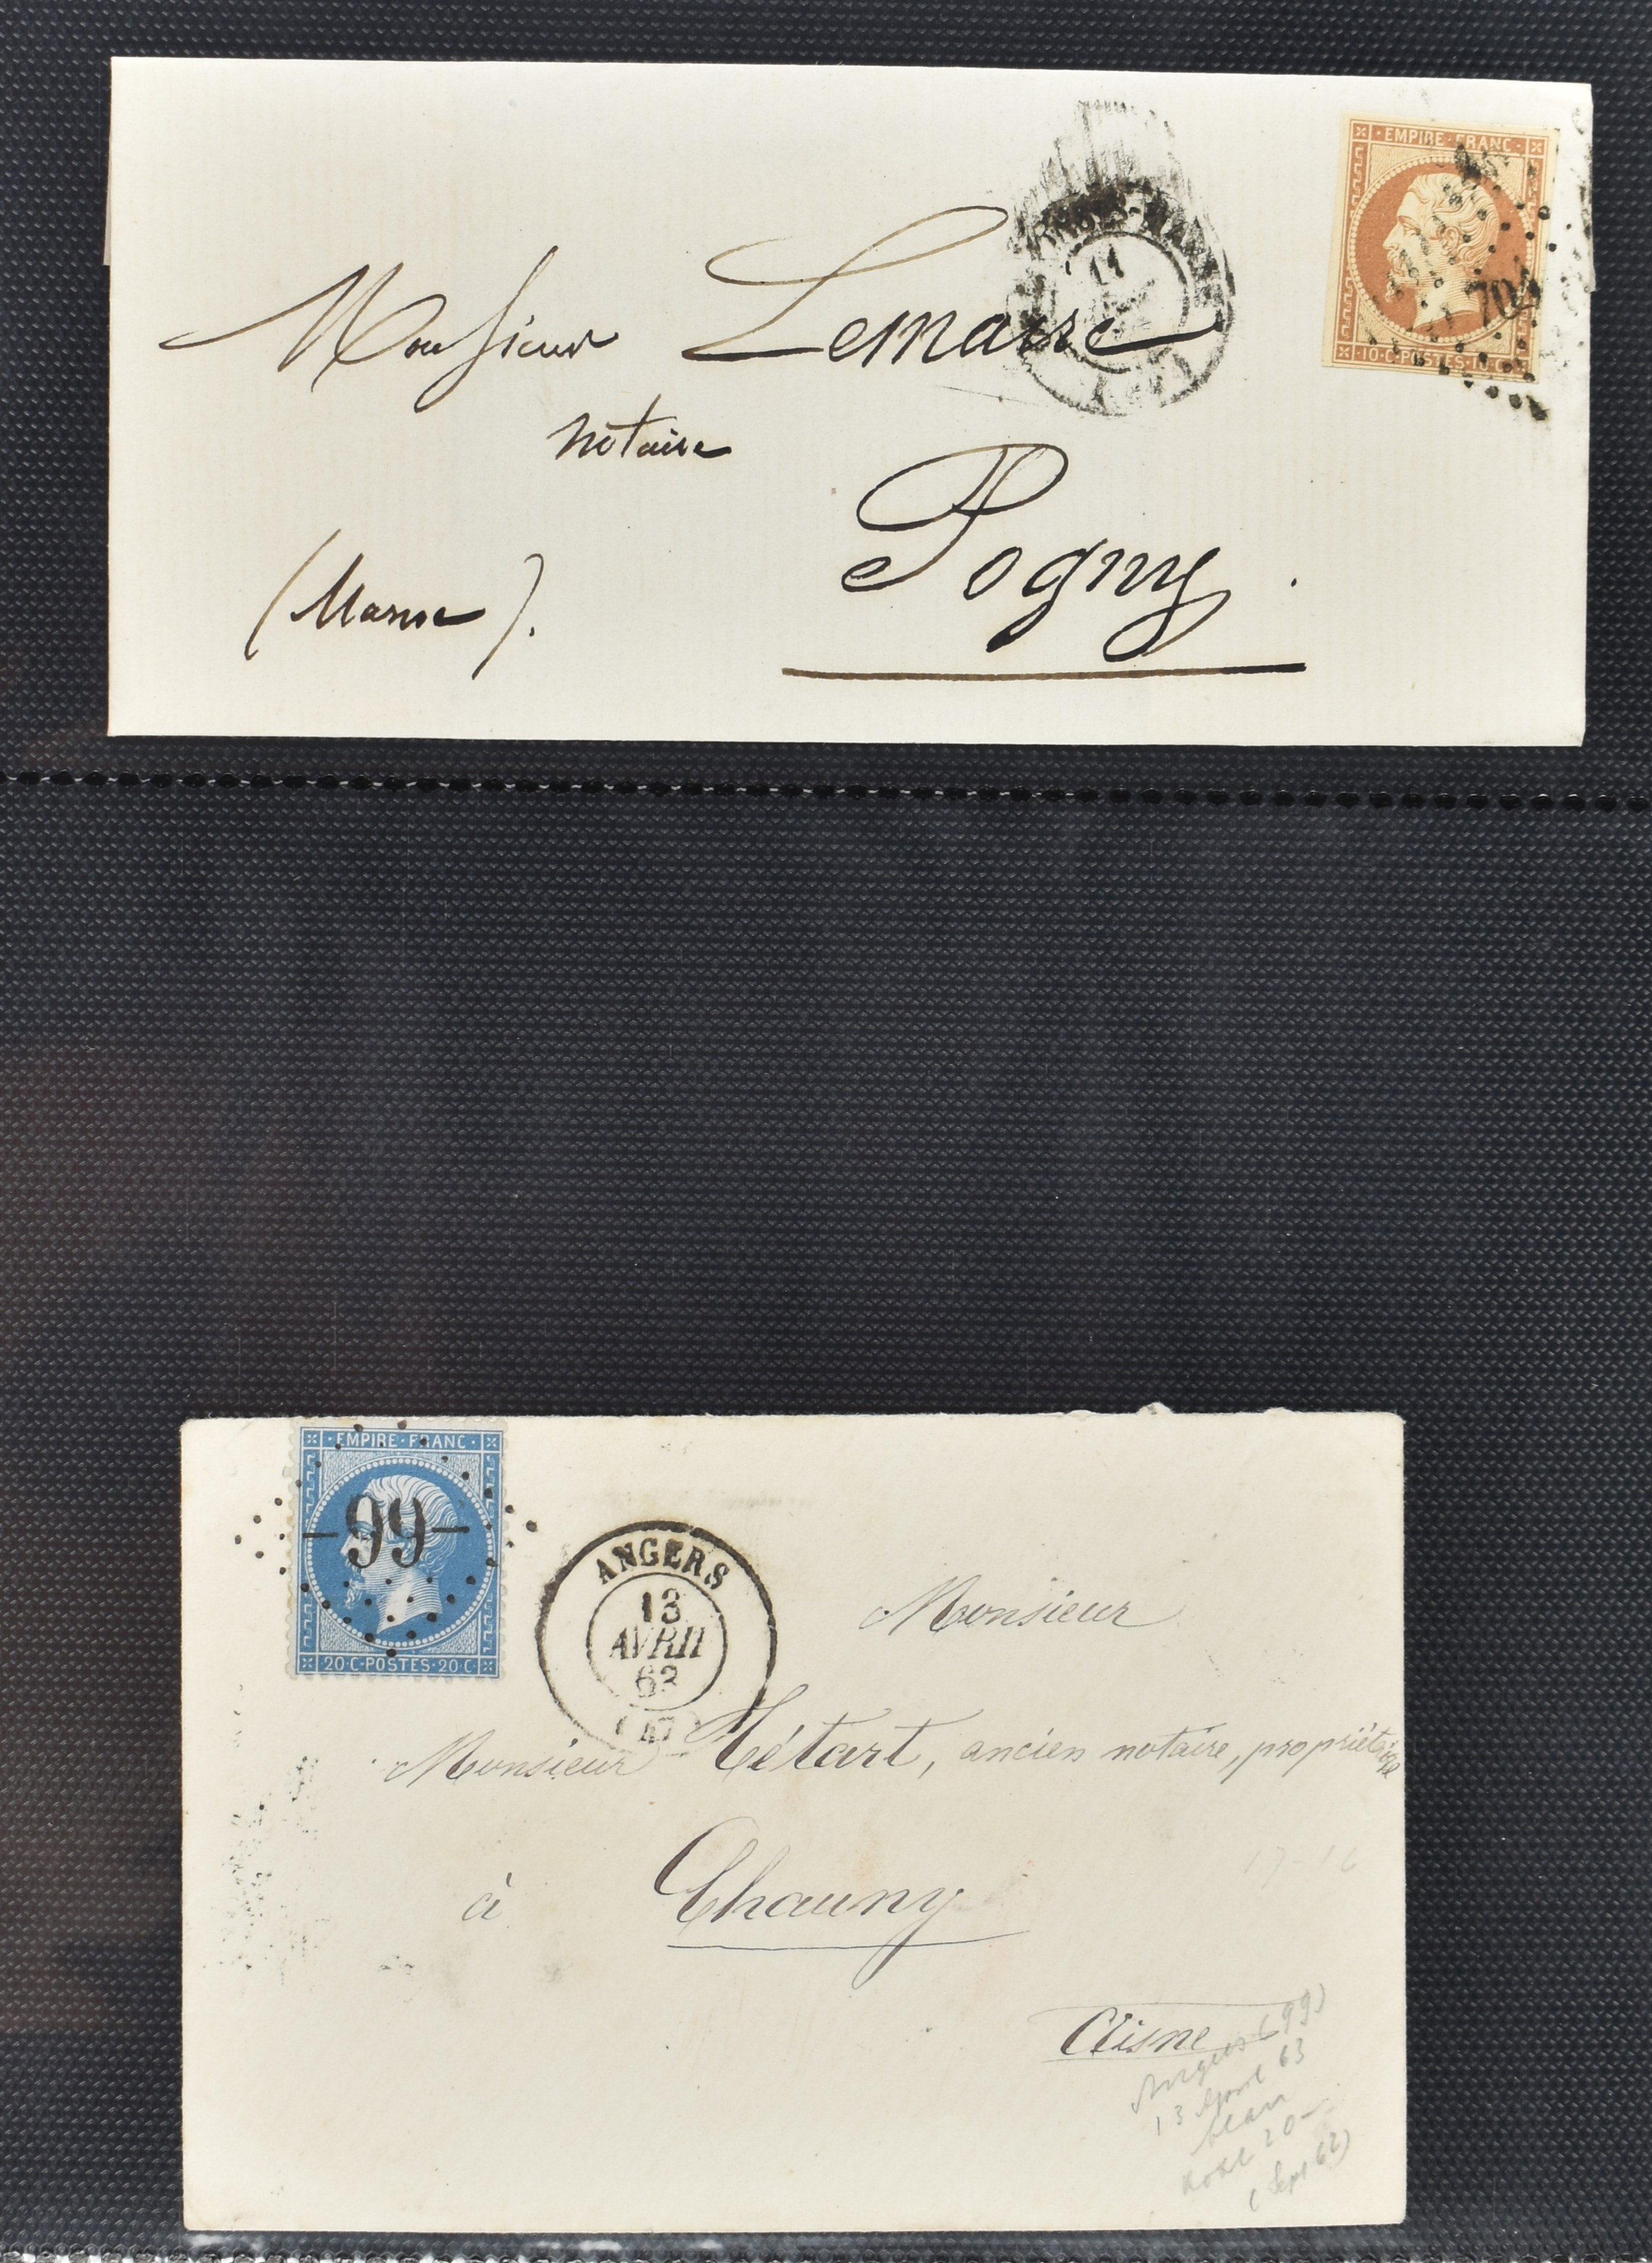 EMPIRE·FRANC·
11
704
10·C·POSTES·10·C
Monsieur Lemaire
notaire
Pogny
(Marne).
EMPIRE·FRANC·
-99-
20·C·POSTES·20·C
ANGERS
13
AVRIL
63
(47)
Monsieur
Monsieur Tétart, ancien notaire, propriétaire
à Chauny
Aisne
17-16
Angers (99)
13 April 63
20-
(Sept 62)